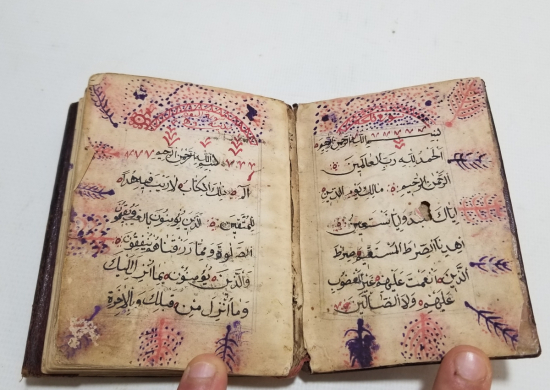 بسم الله الرحمن الرحيم
الحمد لله رب العالمين
الرحمن الرحيم مالك يوم الدين
اياك نعبد واياك نستعين
اهدنا الصراط المستقيم صراط
الذين انعمت عليهم غير المغضوب
عليهم ولا الضالين
بسم الله الرحمن الرحيم
الم ذلك الكتاب لا ريب فيه هدى
للمتقين الذين يؤمنون بالغيب ويقيمون
الصلوة ومما رزقناهم ينفقون
والذين يؤمنون بما انزل اليك
وما انزل من قبلك وبالاخرة